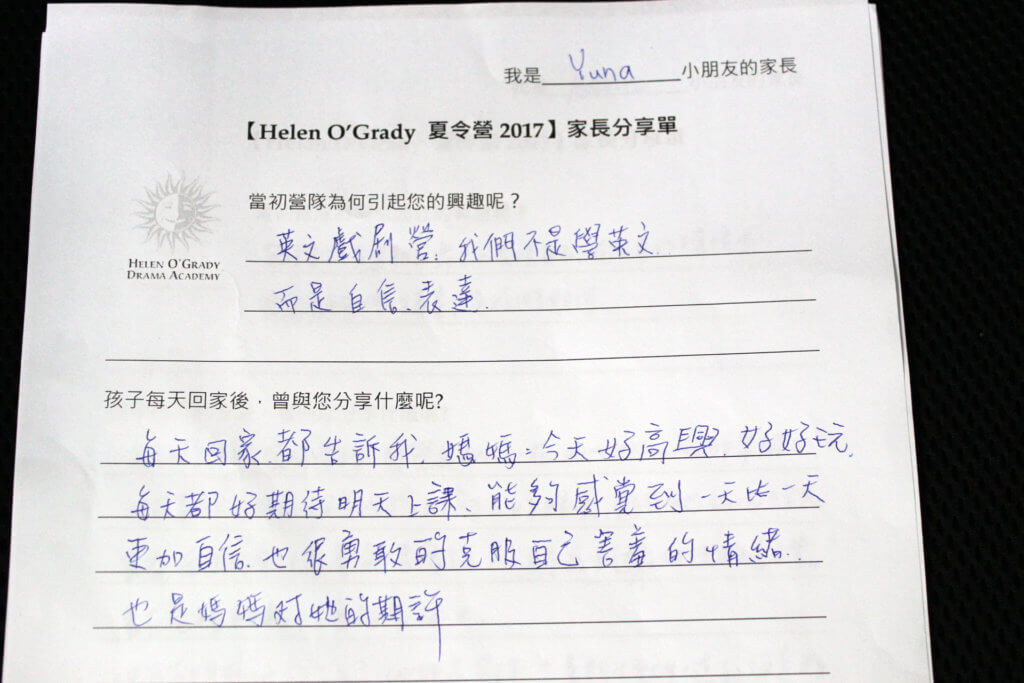 我是 Yuna 小朋友的家長
【Helen O'Grady 夏令營 2017】家長分享單
HELEN O'GRADY
DRAMA ACADEMY
當初營隊為何引起您的興趣呢？
英文戲劇營. 我們不是學英文.
而是自信、表達.
孩子每天回家後，曾與您分享什麼呢?
每天回家.都告訴我. 媽媽:今天好高興.好好玩.
每天都好期待明天上課、能夠感覺到一天比一天
更加自信.也很勇敢的克服自己害羞的情緒.
也是媽媽对她的期許